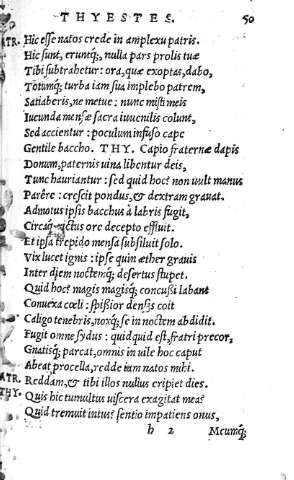 THYESTES. 50
ATR. Hic esse natos crede in amplexu patris.
Hic sunt, eruntq;, nulla pars prolis tuæ
Tibi subtrahetur: ora, quæ exoptas, dabo,
Totumq; turba iam sua implebo patrem,
Satiaberis, ne metue: nunc misti meis
Iucunda mensæ sacra iuuenilis colunt,
Sed accientur: poculum infuso cape
Gentile baccho. THY. Capio fraternæ dapis
Donum, paternis uina libentur deis,
Tunc hauriantur: sed quid hoc? non uult manus
Parêre: crescit pondus, & dextram grauat.
Admotus ipsis bacchus à labris fugit,
Circaq; rictus ore decepto effluit.
Et ipsa trepido mensa subsiluit solo.
Vix lucet ignis: ipse quin æther grauis
Inter diem noctemq; desertus stupet.
Quid hoc? magis magisq; concussi labant
Conuexa cœli: spissior densis coit
Caligo tenebris, noxq; se in noctem abdidit.
Fugit omne sydus: quidquid est, fratri precor,
Gnatisq; parcat, omnis in uile hoc caput
Abeat procella, redde iam natos mihi.
ATR. Reddam, & tibi illos nullus eripiet dies.
THY. Quis hic tumultus uiscera exagitat mea?
Quid tremuit intus? sentio impatiens onus,
h 2 Meumq;